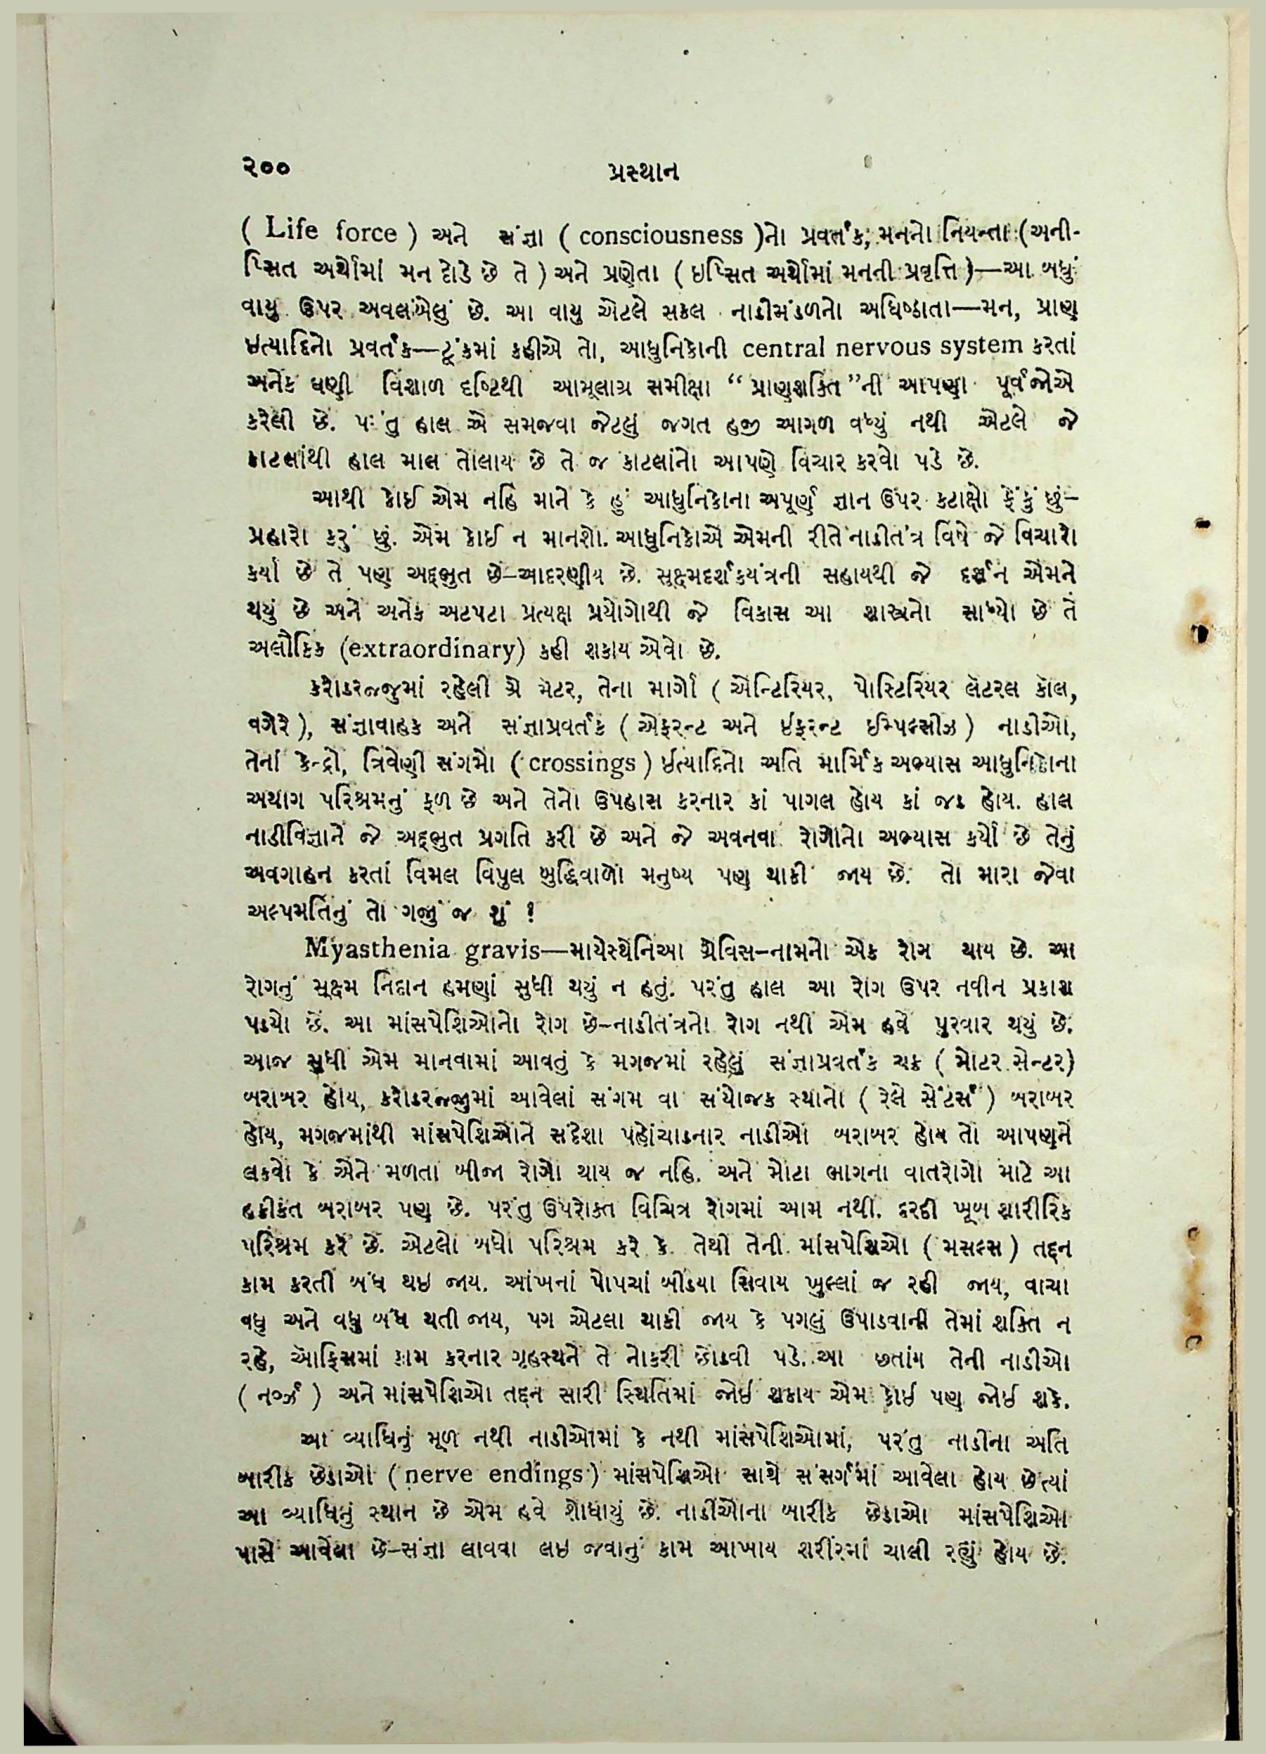 ૨૦૦
પ્રસ્થાન
( Life force ) અને સંજ્ઞા ( consciousness )નો પ્રવર્તક, મનનો નિયન્તા (અની-
પ્સિત અર્થોમાં મન દોડે છે તે ) અને પ્રણેતા ( ઇપ્સિત અર્થોમાં મનની પ્રવૃત્તિ )—આ બધું
વાયુ ઉપર અવલંબેલું છે. આ વાયુ એટલે સકલ નાડીમંડળનો અધિષ્ઠાતા—મન, પ્રાણ
ઇત્યાદિનો પ્રવર્તક—ટૂંકમાં કહીએ તો, આધુનિકોની central nervous system કરતાં
અનેક ઘણી વિશાળ દૃષ્ટિથી આમૂલાગ્ર સમીક્ષા “ પ્રાણશક્તિ ”ની આપણા પૂર્વજોએ
કરેલી છે. પરંતુ હાલ એ સમજવા જેટલું જગત હજી આગળ વધ્યું નથી એટલે જે
કાટલાંથી હાલ માલ તોલાય છે તે જ કાટલાંનો આપણે વિચાર કરવો પડે છે.
આથી કોઈ એમ નહિ માને કે હું આધુનિકોના અપૂર્ણ જ્ઞાન ઉપર કટાક્ષો ફેંકું છું–
પ્રહારો કરું છું. એમ કોઈ ન માનશો. આધુનિકોએ એમની રીતે નાડીતંત્ર વિષે જે વિચારો
કર્યા છે તે પણ અદ્ભુત છે–આદરણીય છે. સૂક્ષ્મદર્શકયંત્રની સહાયથી જે દર્શન એમને
થયું છે અને અનેક અટપટા પ્રત્યક્ષ પ્રયોગોથી જે વિકાસ આ શાસ્ત્રનો સાધ્યો છે તે
અલૌકિક (extraordinary) કહી શકાય એવો છે.
કરોડરજ્જુમાં રહેલી ગ્રે મેટર, તેના માર્ગો ( એન્ટિરિયર, પોસ્ટિરિયર લેટરલ કૉલ,
વગેરે ), સંજ્ઞાવાહક અને સંજ્ઞાપ્રવર્તક ( એફરન્ટ અને ઈફરન્ટ ઇમ્પિલ્સીઝ ) નાડીઓ,
તેનાં કેન્દ્રો, ત્રિવેણી સંગમો ( crossings ) ઇત્યાદિનો અતિ માર્મિક અભ્યાસ આધુનિકોના
અથાગ પરિશ્રમનું ફળ છે અને તેનો ઉપહાસ કરનાર કાં પાગલ હોય કાં જડ હોય. હાલ
નાડીવિજ્ઞાને જે અદ્ભુત પ્રગતિ કરી છે અને જે અવનવા રોગોનો અભ્યાસ કર્યો છે તેનું
અવગાહન કરતાં વિમલ વિપુલ બુદ્ધિવાળો મનુષ્ય પણ થાકી જાય છે. તો મારા જેવા
અલ્પમતિનું તો ગજું જ શું !
Myasthenia gravis—માયેસ્થેનિઆ ગ્રેવિસ–નામનો એક રોગ થાય છે. આ
રોગનું સૂક્ષ્મ નિદાન હમણાં સુધી થયું ન હતું. પરંતુ હાલ આ રોગ ઉપર નવીન પ્રકાશ
પડ્યો છે. આ માંસપેશિઓનો રોગ છે–નાડીતંત્રનો રોગ નથી એમ હવે પુરવાર થયું છે.
આજ સુધી એમ માનવામાં આવતું કે મગજમાં રહેલું સંજ્ઞાપ્રવર્તક ચક્ર ( મોટર સેન્ટર)
બરાબર હોય, કરોડરજ્જુમાં આવેલાં સંગમ વા સંયોજક સ્થાનો ( રેલે સેંટર્સ ) બરાબર
હોય, મગજમાંથી માંસપેશિઓને સંદેશા પહોંચાડનાર નાડીઓ બરાબર હોય તો આપણને
લકવો કે એને મળતા બીજા રોગો થાય જ નહિ. અને મોટા ભાગના વાતરોગો માટે આ
હકીકત બરાબર પણ છે. પરંતુ ઉપરોક્ત વિચિત્ર રોગમાં આમ નથી. દરદી ખૂબ શારીરિક
પરિશ્રમ કરે છે. એટલો બધો પરિશ્રમ કરે કે તેથી તેની માંસપેશિઓ ( મસલ્સ ) તદ્દન
કામ કરતી બંધ થઇ જાય. આંખનાં પોપચાં બીડ્યા સિવાય ખુલ્લાં જ રહી જાય, વાચા
વધુ અને વધુ બંધ થતી જાય, પગ એટલા થાકી જાય કે પગલું ઉપાડવાની તેમાં શક્તિ ન
રહે, ઑફિસમાં કામ કરનાર ગૃહસ્થને તે નોકરી છોડવી પડે. આ છતાંય તેની નાડીઓ
( નર્વ્ઝ ) અને માંસપેશિઓ તદ્દન સારી સ્થિતિમાં જોઈ શકાય એમ કોઈ પણ જોઈ શકે.
આ વ્યાધિનું મૂળ નથી નાડીઓમાં કે નથી માંસપેશિઓમાં, પરંતુ નાડીના અતિ
બારીક છેડાઓ ( nerve endings ) માંસપેશિઓ સાથે સંસર્ગમાં આવેલા હોય છે ત્યાં
આ વ્યાધિનું સ્થાન છે એમ હવે શોધાયું છે. નાડીઓના બારીક છેડાઓ માંસપેશિઓ
પાસે આવેલા છે–સંજ્ઞા લાવવા લઇ જવાનું કામ આખાય શરીરમાં ચાલી રહ્યું હોય છે.